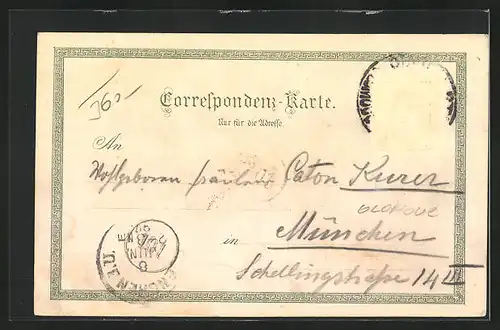 36.-
Correspondenz-Karte.
Nur für die Adresse
An
Wohlgeboren Fräulein Caton Kurer
OLOMOUC
in München
Schellingstraße 14 III